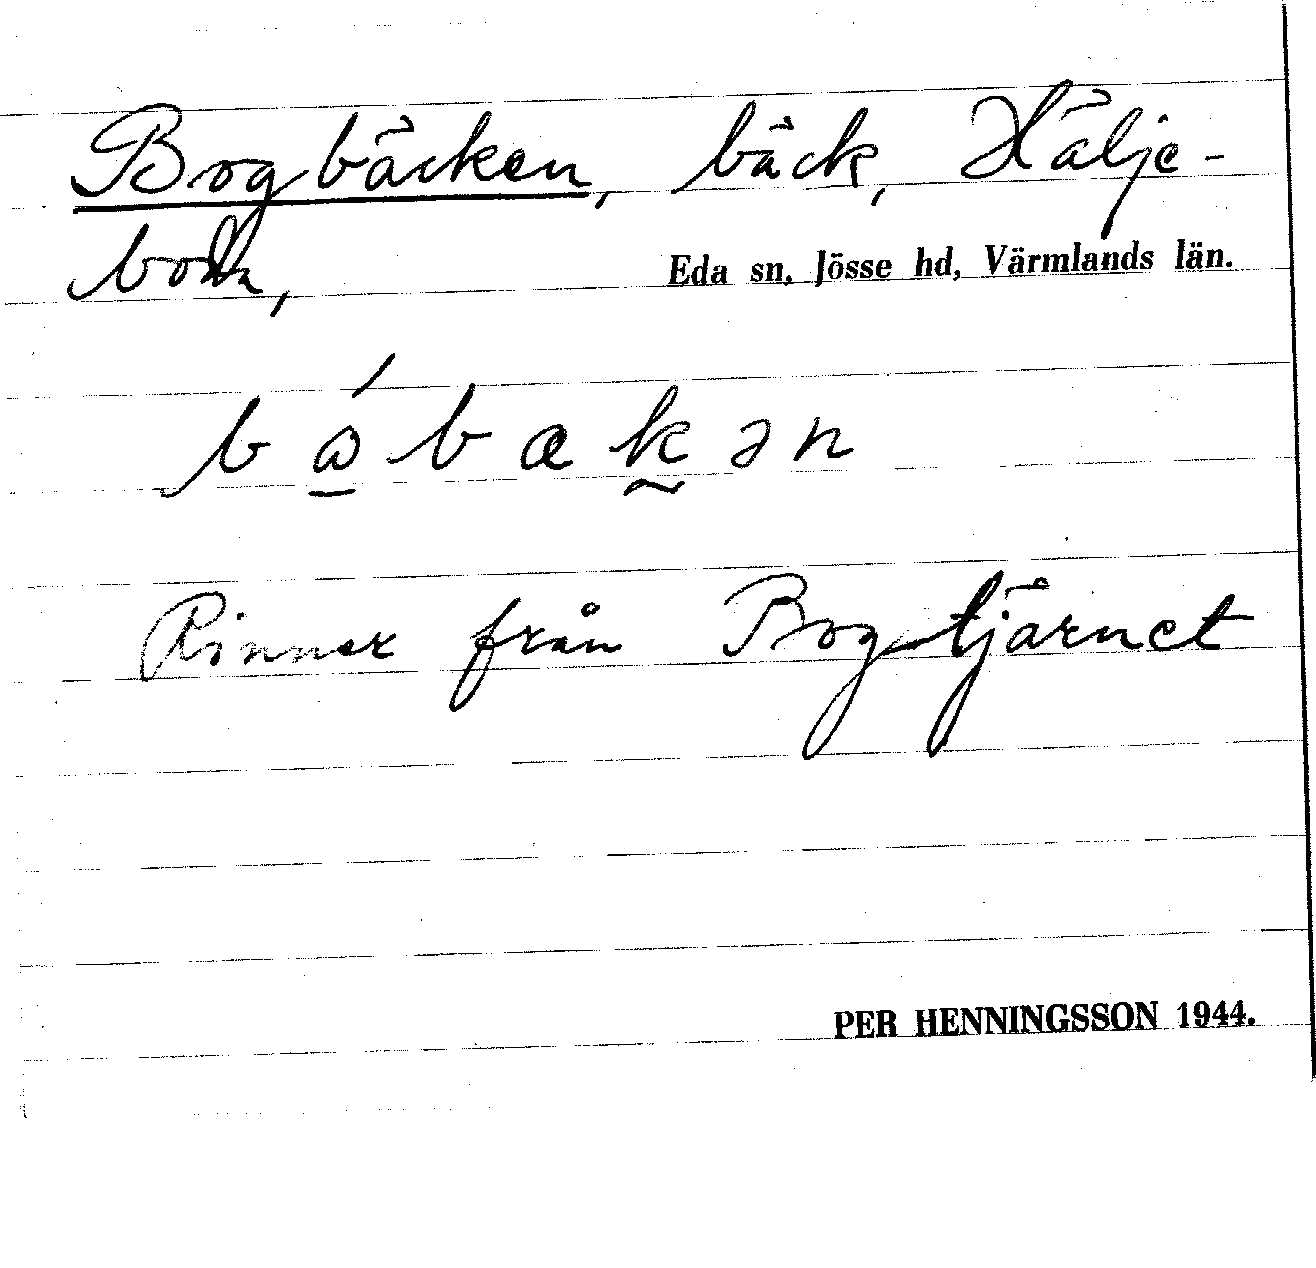 Bogbäcken, bäck, Hälje-
boda,
Eda sn, Jösse hd, Värmlands län.
Rinner från Bogtjärnet
PER HENNINGSSON 1944.